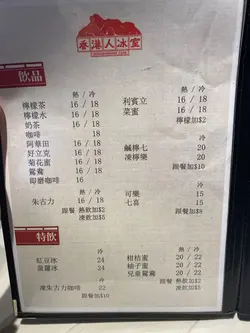 香港人冰室
飲品
熱 / 冷
檸檬茶 16 / 18
檸檬水 16 / 18
奶茶 16 / 18
咖啡 16 / 18
阿華田 16 / 18
好立克 16 / 18
菊花蜜 16 / 18
鴛鴦 16 / 18
即磨咖啡 16
朱古力 16 / 18
跟餐 熱飲加$2
凍飲加$5
熱 / 冷
利賓立 16 / 18
菜蜜 16 / 18
檸檬加$2
冷
鹹檸七 20
凍檸樂 20
跟餐加$10
冷
可樂 15
七喜 15
跟餐加$8
特飲
冷
紅豆冰 24
菠蘿冰 24
冷
凍朱古力咖啡 22
跟餐加$10
熱 / 冷
柑桔蜜 20 / 22
柚子蜜 20 / 22
兒童鴛鴦 20 / 22
跟餐 熱飲加$8
凍飲加$10